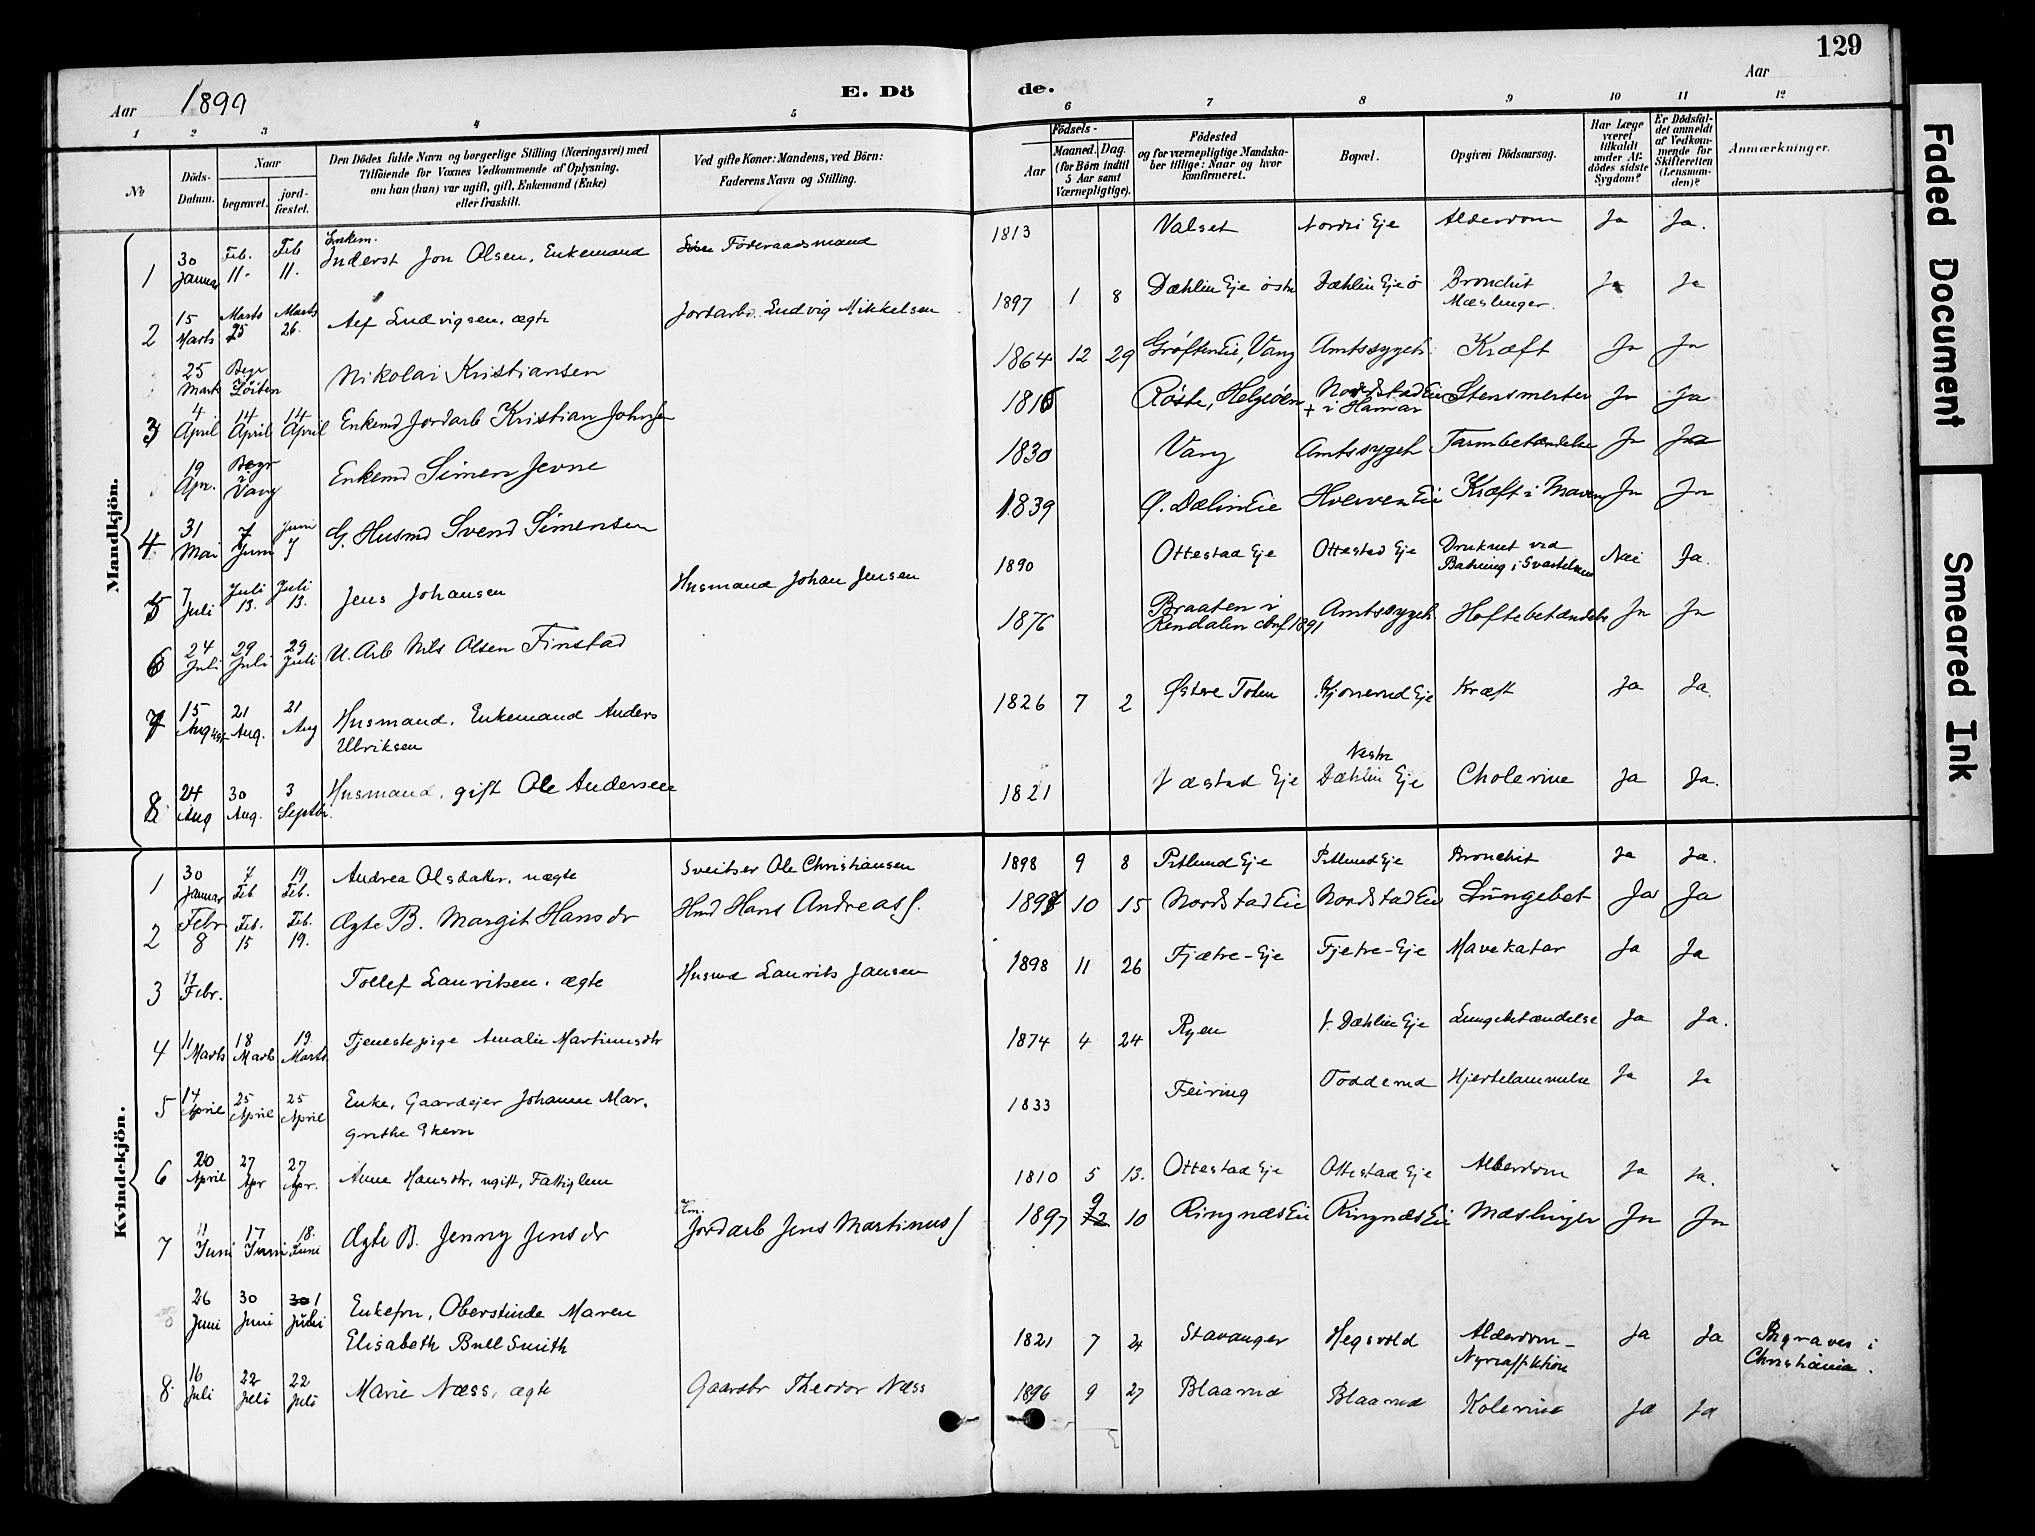 129
Aar 1899
E. Dö
de.
Aar
1 2 3 4 5 6 7 8 9 10 11 12
No
Döds-Datum.
Naar
begravet.
jordfæstet.
Den Dödes fulde Navn og borgerlige Stilling (Næringsvei) med
Tilföiende for Voxnes Vedkommende af Oplysning,
om han (hun) var ugift, gift, Enkemand (Enke)
eller fraskilt.
Ved gifte Koner: Mandens, ved Börn:
Faderens Navn og Stilling.
Födsels-
Aar
Maaned. Dag.
(for Börn indtil
5 Aar samt
Værnepligtige).
Födested
og for værnepligtige Mandska-
ber tillige: Naar og hvor
konfirmeret.
Bopæl.
Opgiven Dödsaarsag.
Har Læge
været
tilkaldt
under Af-
dödes sidste
Sygdom?
Er Dödsfal-
det anmeldt
af Vedkom-
mende for
Skifteretten
(Lensman-
den)?
Anmærkninger.
Mandkjön.
1 30 Januar Feb. 11. Feb 11. Inderst Jon Olsen, Enkemand Föderaadsmand 1813 Valset Nordre Eje Alderdom Ja Ja.
2 15 Marts Marts 25 Marts 26. Alf Ludvigsen, ægte Jordarb. Ludvig Mikkelsen 1897 1 8 Dæhlin Eje östre Dæhlin Eje ö Bronchit Mæslinger. Ja Ja
25 Marts Begr Löiten Nikolai Kristiansen 1864 12 29 Gröften Eie, Vang Amtssygeh. Kræft Ja Ja
3 4 April 14 April 14 April Enkemd Jordarb Kristian Johnsen 1816 Röste, Helgöen Nordstad Eie + i Hamar Stensmerter Ja Ja
19 Apr. Begr i Vang Enkemd Simen Jevne 1830 Vang Amtssygeh Tarmbetændelse Ja Ja
4 31 Mai 7 Juni Juni 7 G. Husmd Svend Simensen 1839 Ø. Dælin Eie Hverven Eie Kræft i Maven Ja Ja
5 7 Juli Juli 13. Juli 13. Jens Johansen Husmand Johan Jensen 1890 Ottestad Eje Ottestad Eje Druknet ved Badning i Svartelven Nei Ja.
6 24 Juli 29 Juli 29 Juli U. Arb Nils Olsen Finstad 1876 Braaten i Rendalen conf. 1891 Amtssygeh. Hoftebetændelse Ja Ja
7 15 August 21 Aug. 21 Aug Husmand, Enkemand Anders
Ulriksen 1826 7 2 Østre Toten Kjonerud Eje Kræft Ja Ja.
8 24 Aug 30 Aug. 3 Septbr. Husmand, gift Ole Andersen 1821 Væstad Eje Vestre Dæhlin Eje Cholerine Ja Ja.
Kvindekjön.
1 30 Januar 7 Feb 19 Feb. Andrea Olsdatter, uægte Sveitser Ole Christiansen 1898 9 8 Pitlund Eje Pitlund Eje Bronchit Ja Ja.
2 Febr 8 Feb. 15 Feb. 19. Ægte B. Margit Hansdr Hmd Hans Andreas S. 1897 10 15 Nordstad Eie Nordstad Eie Lungebet Ja Ja
3 17 Febr. Tollef Lauritsen, ægte Husmd Laurits Jansen 1898 11 26 Fjætre-Eje Fjetre-Eje Mavekatar Ja Ja
4 11 Marts 18 Marts 19. Marts Tjenestepige Amalie Martinusdtr 1874 4 24 Ryen V. Dæhlin Eje Lungebetændelse Ja Ja.
5 14 April 25 April 25 April Enke, Gaardejer Johanne Mar-
grethe Skern 1833 Feiring Todderud Hjertelammelse Ja Ja
6 20 April 27 Apr 27 Apr. Anne Hansdtr, ugift, Fattiglem 1810 5 13. Ottestad Eje Ottestad Eje Alderdom Ja Ja.
7 11 Juni 17 Juni 18. Juni Ægte B. Jenny Jensdr Em. Jordarb Jens Martinus S 1897 9 10 Ringnæs Eie Ringnæs Eie Mæslinger Ja Ja
26 Juni 30 Juni 30 1 Juli Enkefru, Oberstinde Maren
Elisabeth Bull Smith 1821 7 24 Stavanger Hegsvold Alderdom - Nyreaffektion Ja Ja Begraves i Christiania.
8 16 Juli 22 Juli 22 Juli Marie Næss, ægte Gaardbr Theodor Næss 1896 9 27 Blaarud Blaarud Kolerine Ja Ja
Faded Document
Smeared Ink